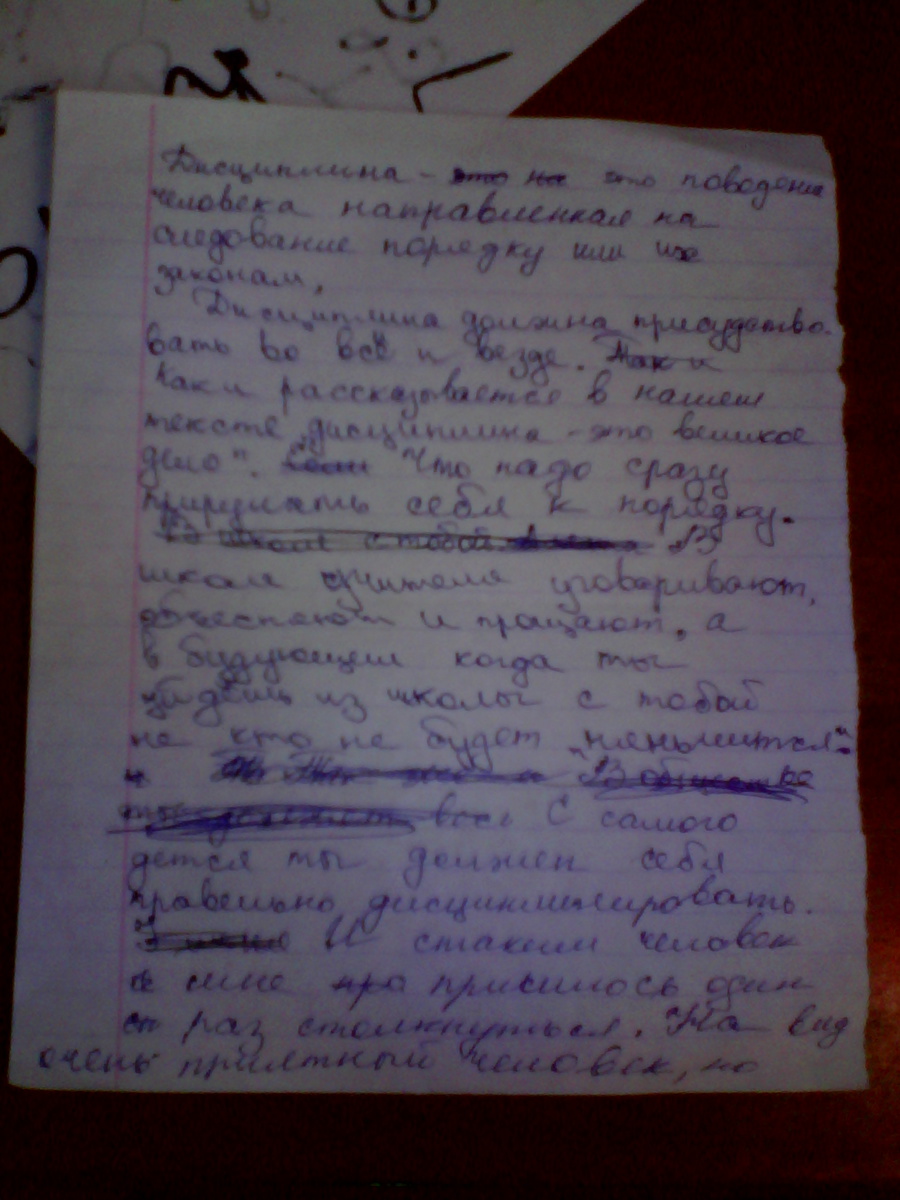 Дисциплина - это поводение
человека направленная на
следование порядку или
законам.
Дисциплина должна присудство-
вать во всё и везде.
Как и рассказывается в нашем
тексте „дисциплина - это великое
дело". Что надо сразу
приручать себя к порядку.
В
школе учителя уговаривают,
объесняют и прощают, а
в будующем когда ты
уйдёшь из школы с тобой
не кто не будет „няньчится".
С самого
дется ты должен себя
правельно дисциплинировать.
И стаким человек
мне присилось один
раз столкнуться. На вид
очень приятный человек, но